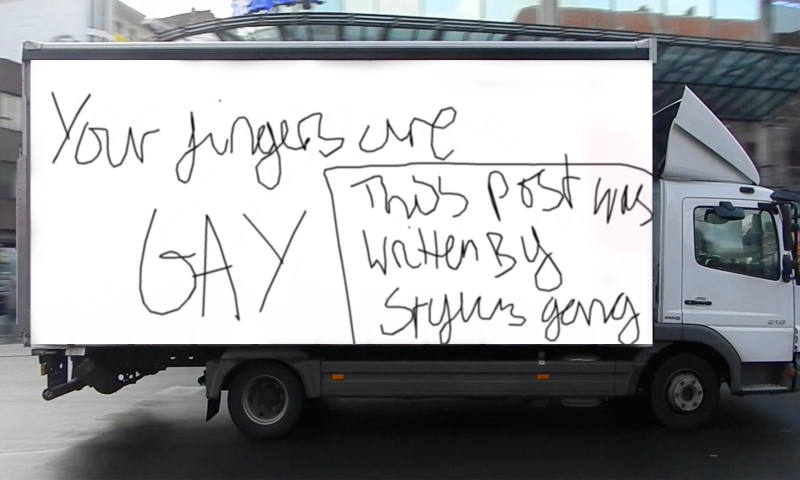 Your fingers are
GAY
This post was
written By
Stylus gang